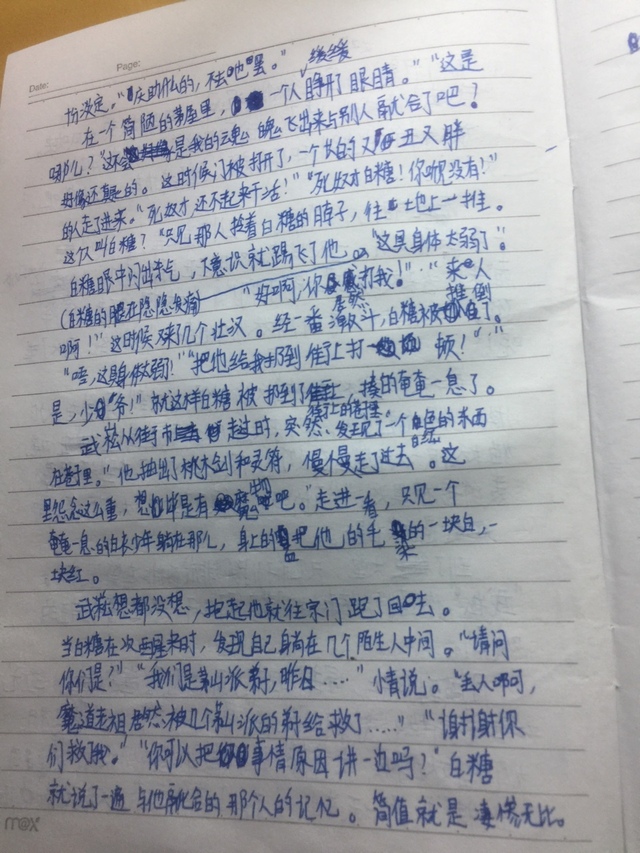 Date: Page:
份淡定。"庆助什么的,不去吧罢。" 缓缓
在一个简陋的茅屋里,一个人睁开了眼睛。"这是
哪儿?""这是我的云魂魄飞出来与别人融合了吧?
好像还真的。这时候门被打开了,一个长的又丑又胖
的人走了进来。"死奴才,还不起来干活!""死奴才白糖!你呢没有!"
这个人叫白糖?"只见那人拎着白糖的脖子,往地上一推。
白糖眼中闪出杀气,下意识就踢飞了他。"这具身体太弱了"。
(白糖的眼在隐隐发痛) "好啊,你居然打我!" "来人
啊!"这时候又来几个壮汉。经一番激斗,白糖被推倒了。
"唔,这身体太弱!""把他给我扔到街上打一顿!" "
是,少爷!"就这样白糖被扔到了街上,揍的奄奄一息了。
武崧从街市走过时,突然发现了一个白色的东西
街上的巷子里 白红
在巷子里。"他抽出了桃木剑和灵符,慢慢走了过去。这
里怨念这么重,想毕是有魔物吧。"走进一看,只见一个
奄奄一息的白衣少年躺在那儿,身上的血把他的毛染的一块白,一
块红。
武崧想都没想,抱起他就往宗门跑了回去。
当白糖在次醒来时,发现自己身尚在几个陌生人中间。"请问
你们是?""我们是茅山派弟子,昨日……"小情说。"丢人啊啊,
魔道老祖居然被几个茅山派的弟子给救了……""谢谢你
们救了我。""你可以把事情原因讲一边吗?"白糖
就说了一遍与他融合的那个人的记忆。简值就是凄惨无比。
max